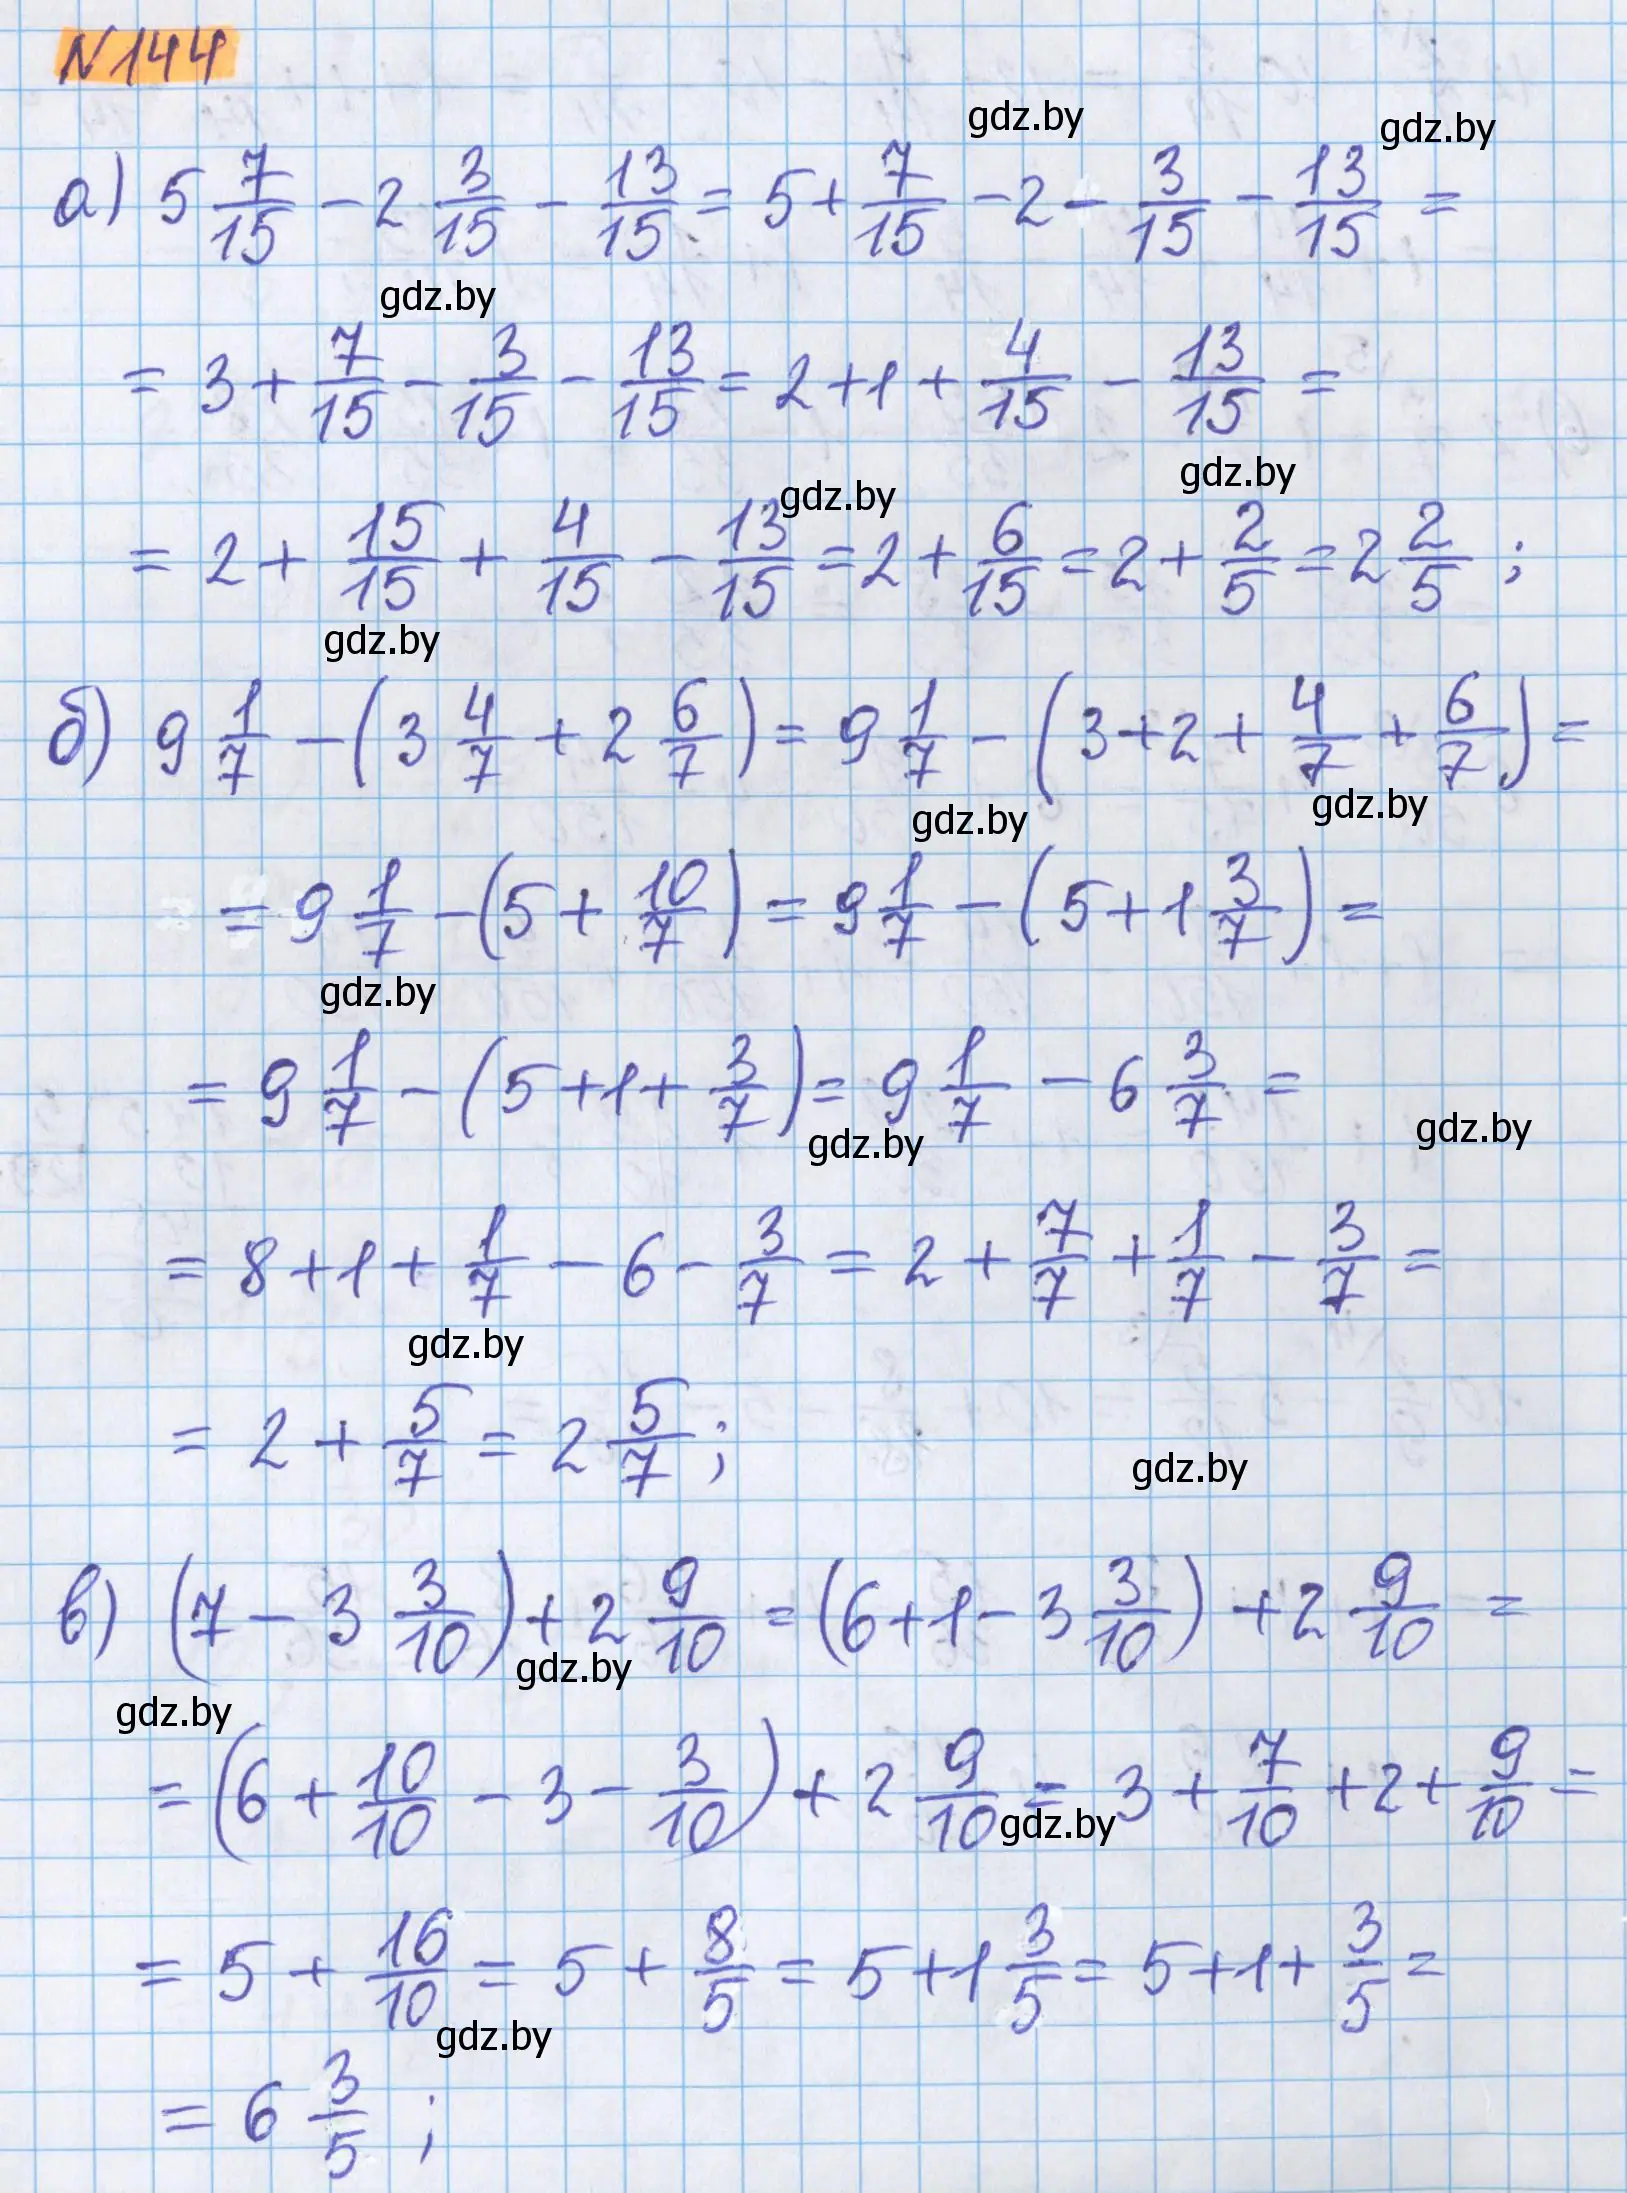 N144
gdz.by gdz.by
а) 5 7/15 − 2 3/15 − 13/15 = 5 + 7/15 − 2 − 3/15 − 13/15 =
gdz.by
= 3 + 7/15 − 3/15 − 13/15 = 2 + 1 + 4/15 − 13/15 =
gdz.by gdz.by
= 2 + 15/15 + 4/15 − 13/15 = 2 + 6/15 = 2 + 2/5 = 2 2/5 ;
gdz.by
б) 9 1/7 − (3 4/7 + 2 6/7) = 9 1/7 − (3 + 2 + 4/7 + 6/7) =
gdz.by gdz.by
= 9 1/7 − (5 + 10/7) = 9 1/7 − (5 + 1 3/7) =
gdz.by
= 9 1/7 − (5 + 1 + 3/7) = 9 1/7 − 6 3/7 =
gdz.by gdz.by
= 8 + 1 + 1/7 − 6 − 3/7 = 2 + 7/7 + 1/7 − 3/7 =
gdz.by
= 2 + 5/7 = 2 5/7 ;
gdz.by
в) (7 − 3 3/10) + 2 9/10 = (6 + 1 − 3 3/10) + 2 9/10 =
gdz.by gdz.by
= (6 + 10/10 − 3 − 3/10) + 2 9/10 = 3 + 7/10 + 2 + 9/10 =
gdz.by
= 5 + 16/10 = 5 + 8/5 = 5 + 1 3/5 = 5 + 1 + 3/5 =
gdz.by
= 6 3/5 ;